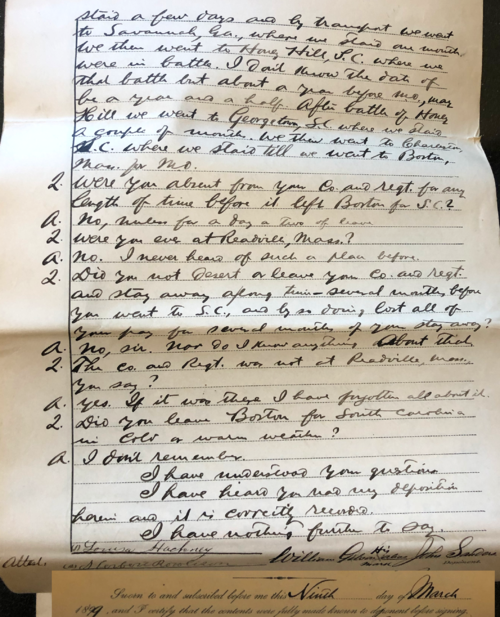 staid a few days and by transport we went
to Savannah, Ga., where we staid one month
We then went to Honey Hill, S.C. where we
were in battle. I don't know the date of
that battle but about a year before mo., may
be a year and a half. After battle of Honey
Hill we went to Georgetown, S.C. where we staid
a couple of months. We then went to Charleston
S.C. where we staid till we went to Boston,
Mass. for M.O.
Q. Were you absent from your Co. and regt. for any
length of time before it left Boston for S.C.?
A. No, unless for a day or two of leave
Q. Were you ever at Readville, Mass.?
A. No. I never heard of such a place before.
Q. Did you not desert or leave your Co. and regt.
and stay away a long time - several months before
you went to S.C., and by so doing lost all of
your pay for several months of your stay away?
A. No, sir. Nor do I know anything about that
Q. The Co. and Regt. was not at Readville, Mass.
you say?
A. Yes. If it was there I have forgotten all about it.
Q. Did you leave Boston for South Carolina
in cold or warm weather?
A. I don't remember.
I have understood your questions
I have heard you read my deposition
herein and it is correctly recorded.
I have nothing further to say.
Hackney
Attest. William His mark
Sworn to and subscribed before me this Ninth day of March
, and I certify that the contents were fully made known to deponent before signing.